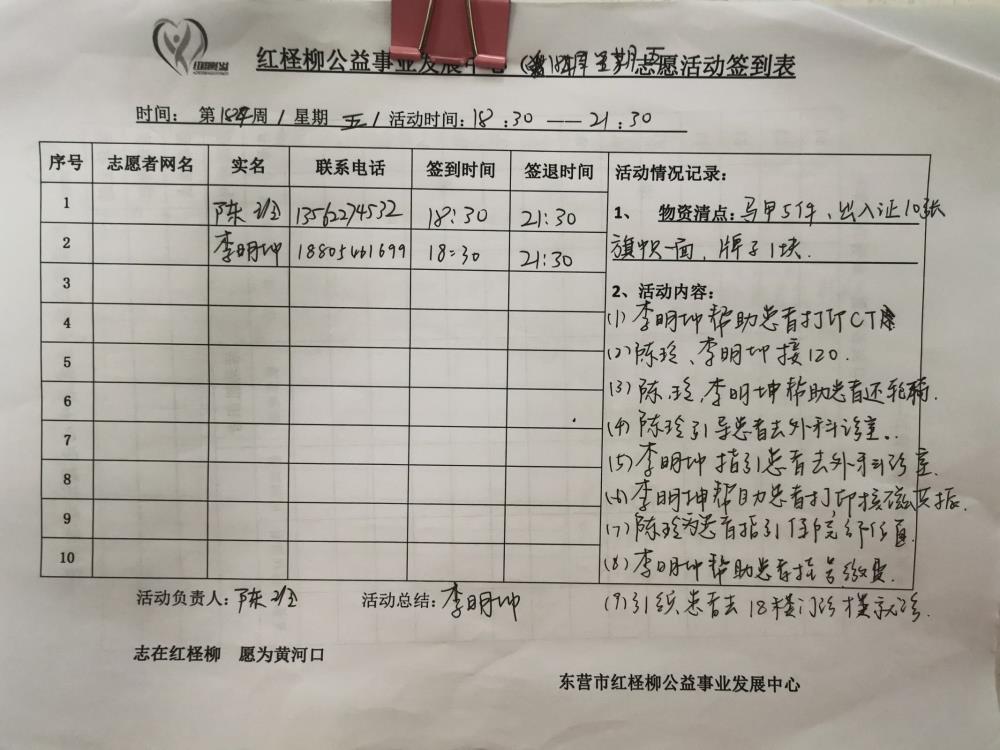 红柽柳公益事业发展中心（第184周星期五志愿活动签到表
时间： 第184周/星期五/活动时间：18:30——21:30
序号 志愿者网名 实名 联系电话 签到时间 签退时间 活动情况记录：
1 陈玲 13562274532 18:30 21:30
1、 物资清点：马甲5件、出入证10张
2 李明坤 18805461699 18:30 21:30
旗帜一面、牌子1块.
3
2、活动内容：
4
(1)李明坤帮助患者打印CT
5
(2)陈玲、李明坤接120.
6
(3)陈玲、李明坤帮助患者还轮椅.
7
(4)陈玲引导患者去外科诊室.
8
(5)李明坤指引患者去外科诊室.
(6)李明坤帮助患者打印核磁共振.
9
(7)陈玲为患者指引住院部位置
10
(8)李明坤帮助患者挂号缴费.
活动负责人：陈玲 活动总结：李明坤
(9)引领患者去18楼门诊楼就诊.
志在红柽柳 愿为黄河口
东营市红柽柳公益事业发展中心